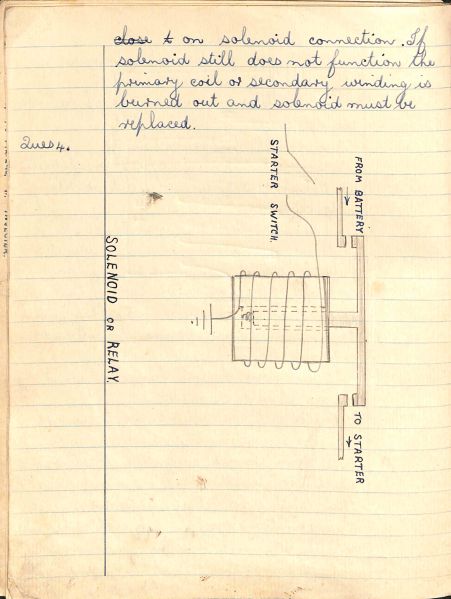 close t on solenoid connection. If
solenoid still does not function the
primary coil or secondary winding is
burned out and solenoid must be
replaced.
Ques 4.
FROM BATTERY
STARTER SWITCH.
SOLENOID OR RELAY.
TO STARTER